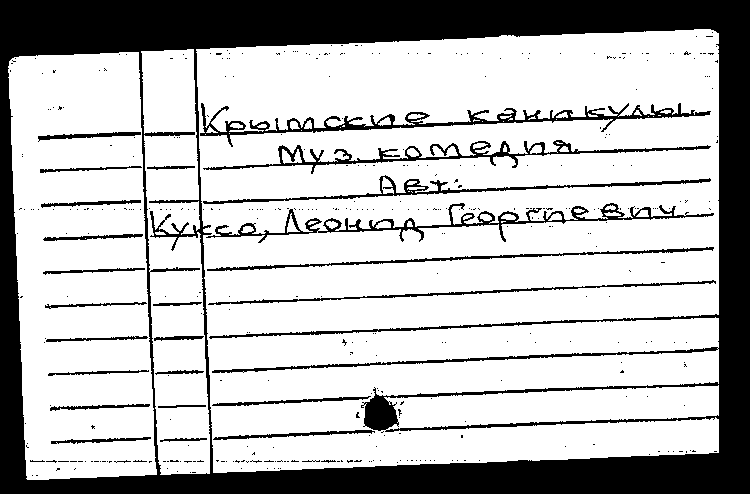 Крымские каникулы.
Муз. комедия.
Авт.:
Куксо, Леонид Георгиевич.